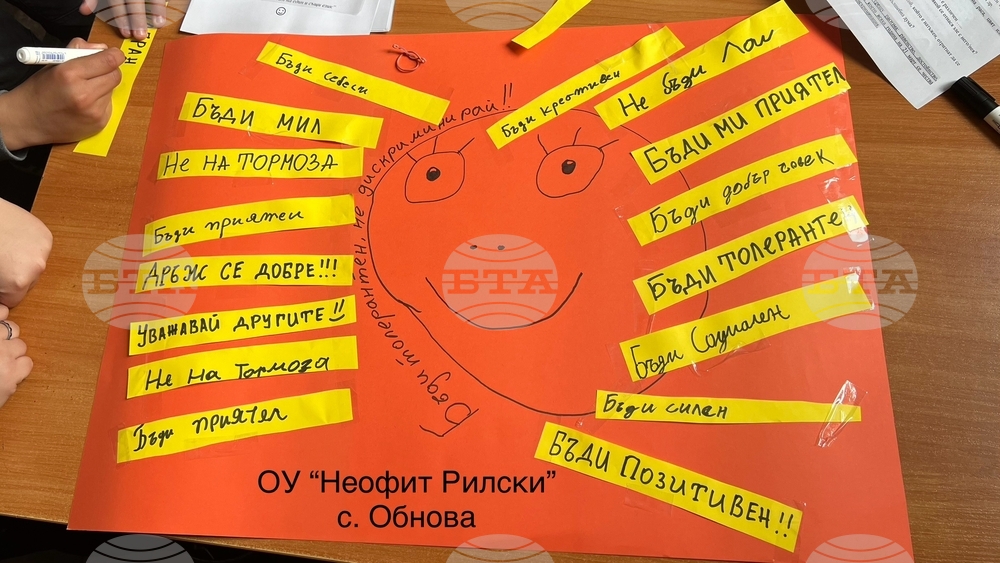 ТРАН
Бъди себеси
БЪДИ МИЛ
Не НА ТОРМОЗА
Бъди приятел
ДРБЖ СЕ ДОБРЕ!!!
УВАЖАВАЙ ДРУГИТЕ!!
Не На Тормоза
Бъди ПРИЯТЕЛ
Бъди толерантен. не дискриминирай!!
Бъди креотивен
Не бъди Лош
БЪДИ МИ ПРИЯТЕЛ
Бъди добър човек
БЪДИ ТОЛЕРАНТЕН
Бъди Социален
Бъди силен
БЪДИ ПОЗИТИВЕН!!
ОУ “Неофит Рилски”
с. Обнова
БТА
БТА
БТА